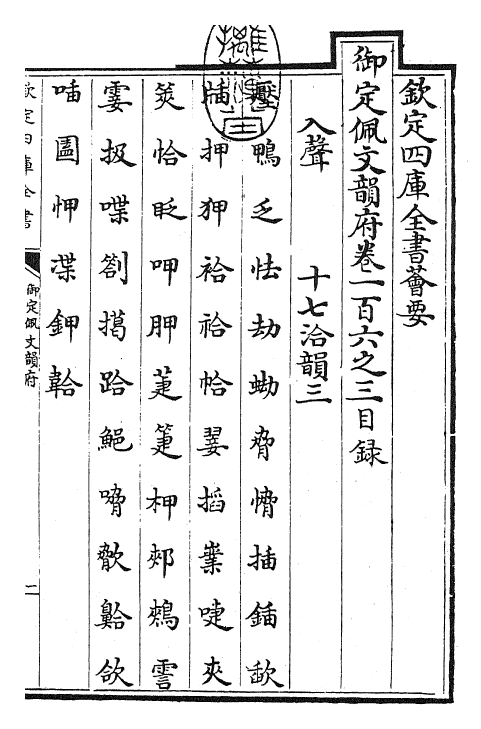 欽定四庫全書薈要
御定佩文韻府卷一百六之三目録
入聲
十七洽韻三
壓鴨乏怯劫蜐脅愶插鍤歃
牐押狎袷祫帢翣搯業啑夾
筴恰眨呷胛萐箑柙郟鵊霅
霎扱喋劄擖跲鮑嗋歙㰦欱
㗙圔㤉渫鉀韐
欽定四庫全書
御定佩文韻府
一